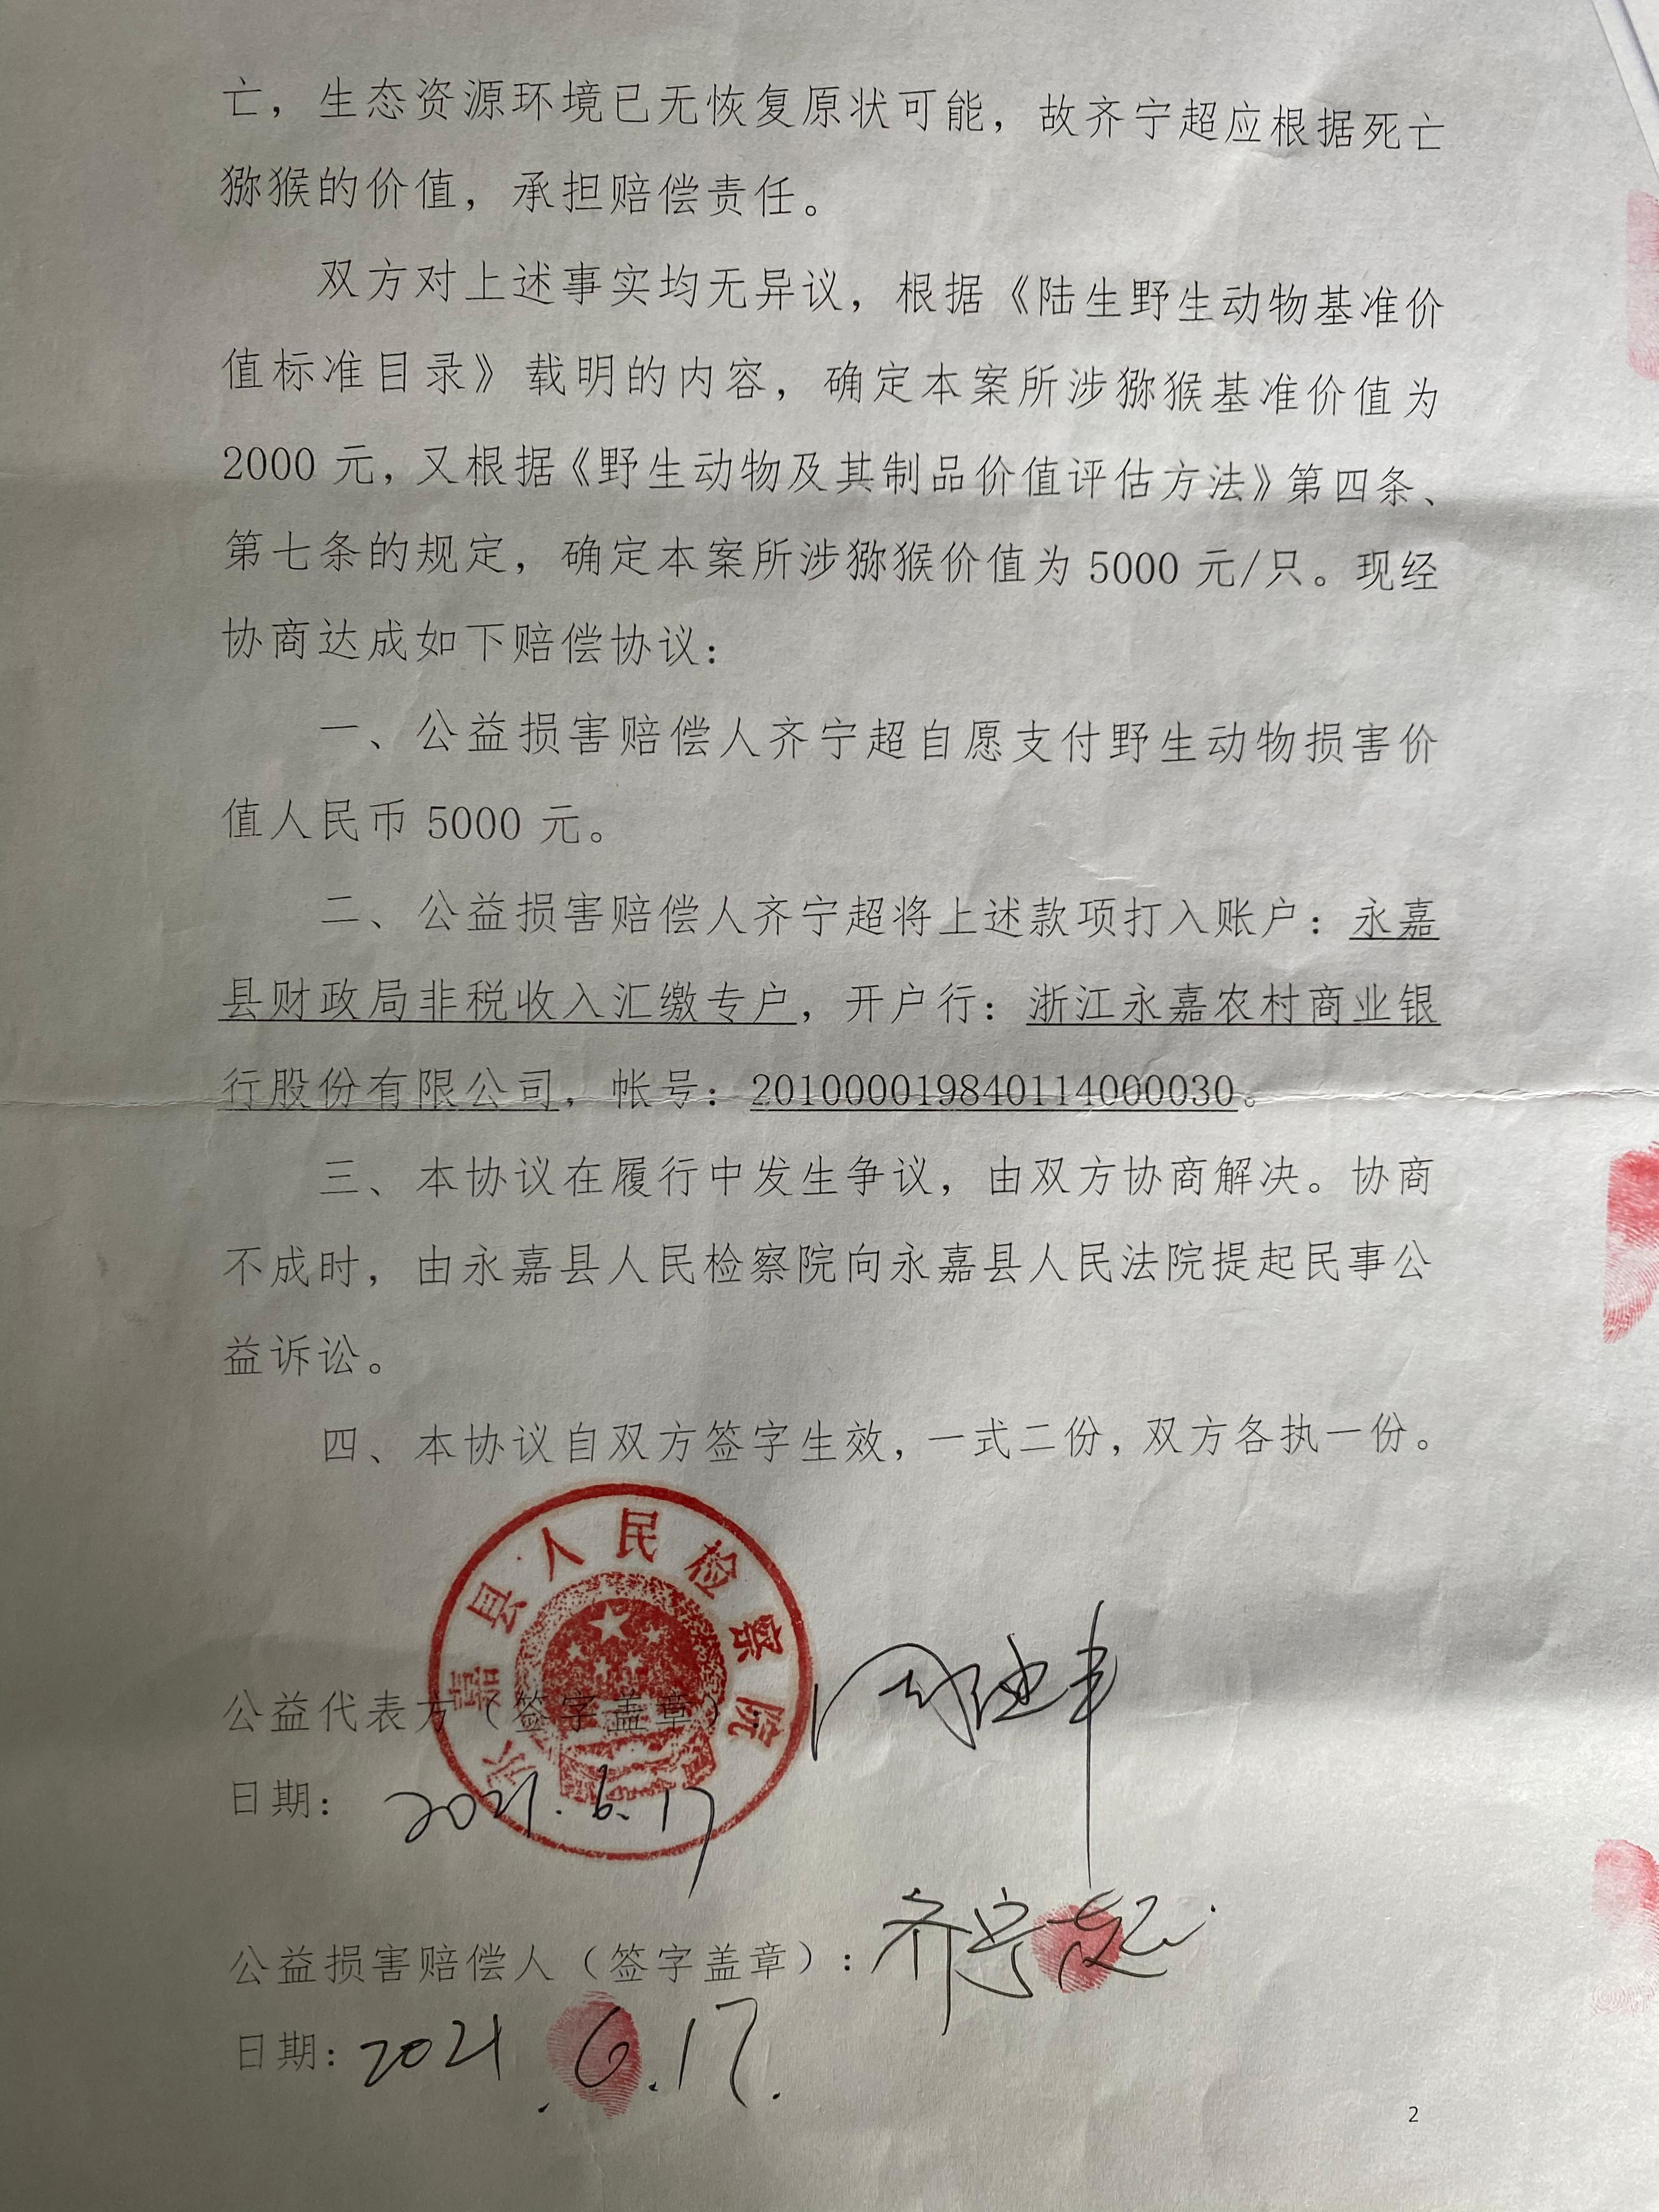 亡，生态资源环境已无恢复原状可能，故齐宁超应根据死亡
猕猴的价值，承担赔偿责任。
双方对上述事实均无异议，根据《陆生野生动物基准价
值标准目录》载明的内容，确定本案所涉猕猴基准价值为
2000 元，又根据《野生动物及其制品价值评估方法》第四条、
第七条的规定，确定本案所涉猕猴价值为 5000 元/只。现经
协商达成如下赔偿协议：
一、公益损害赔偿人齐宁超自愿支付野生动物损害价
值人民币 5000 元。
二、公益损害赔偿人齐宁超将上述款项打入账户：永嘉
县财政局非税收入汇缴专户，开户行：浙江永嘉农村商业银
行股份有限公司，帐号：201000019840114000030。
三、本协议在履行中发生争议，由双方协商解决。协商
不成时，由永嘉县人民检察院向永嘉县人民法院提起民事公
益诉讼。
四、本协议自双方签字生效，一式二份，双方各执一份。
永嘉县人民检察院
公益代表方（签字盖章）
日期： 2021.6.17
公益损害赔偿人（签字盖章）：齐宁超
日期：2021.6.17.
2